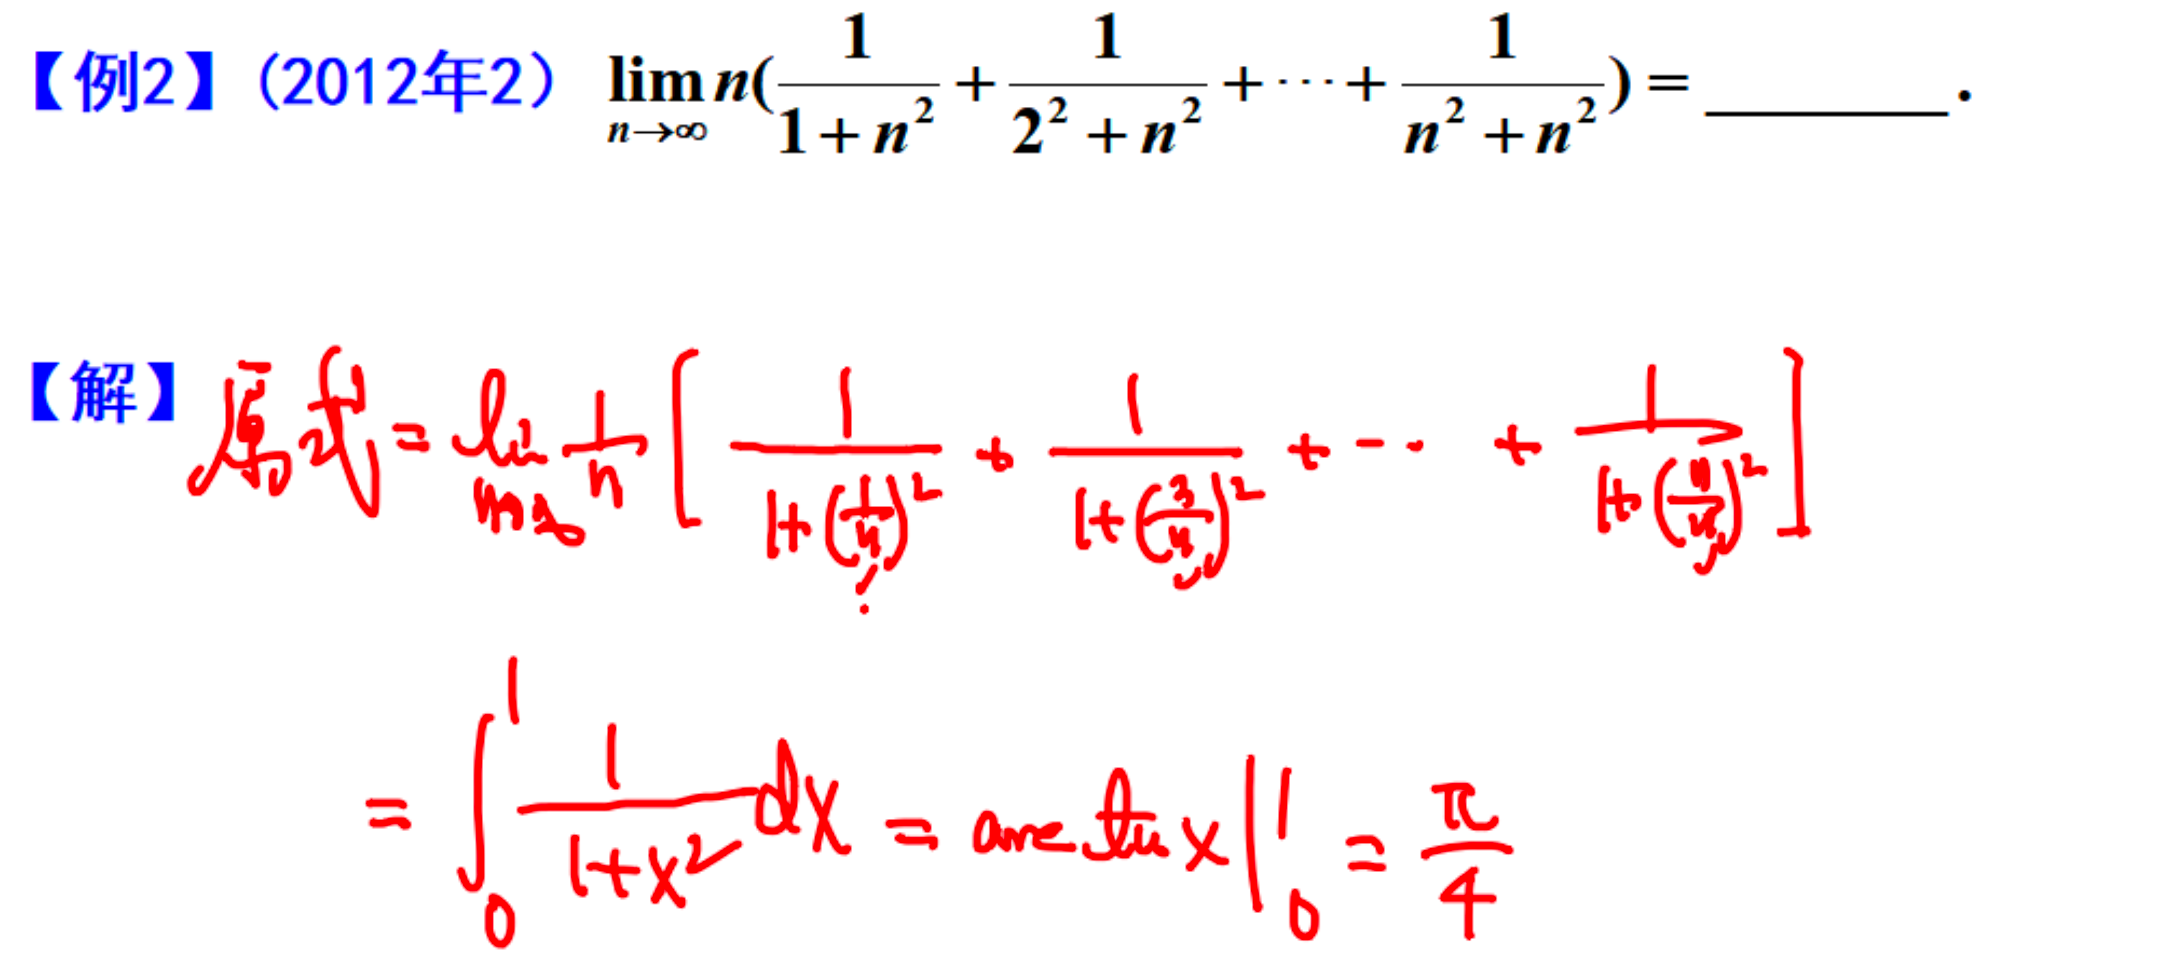 【例2】(2012年2) lim_{n→∞} n(1/(1+n²) + 1/(2²+n²) + ⋯ + 1/(n²+n²)) = ________.
【解】原式 = lim_{n→∞} 1/n [ 1/(1+(1/n)²) + 1/(1+(2/n)²) + ⋯ + 1/(1+(n/n)²) ]
= ∫₀¹ 1/(1+x²) dx = arctan x |₀¹ = π/4